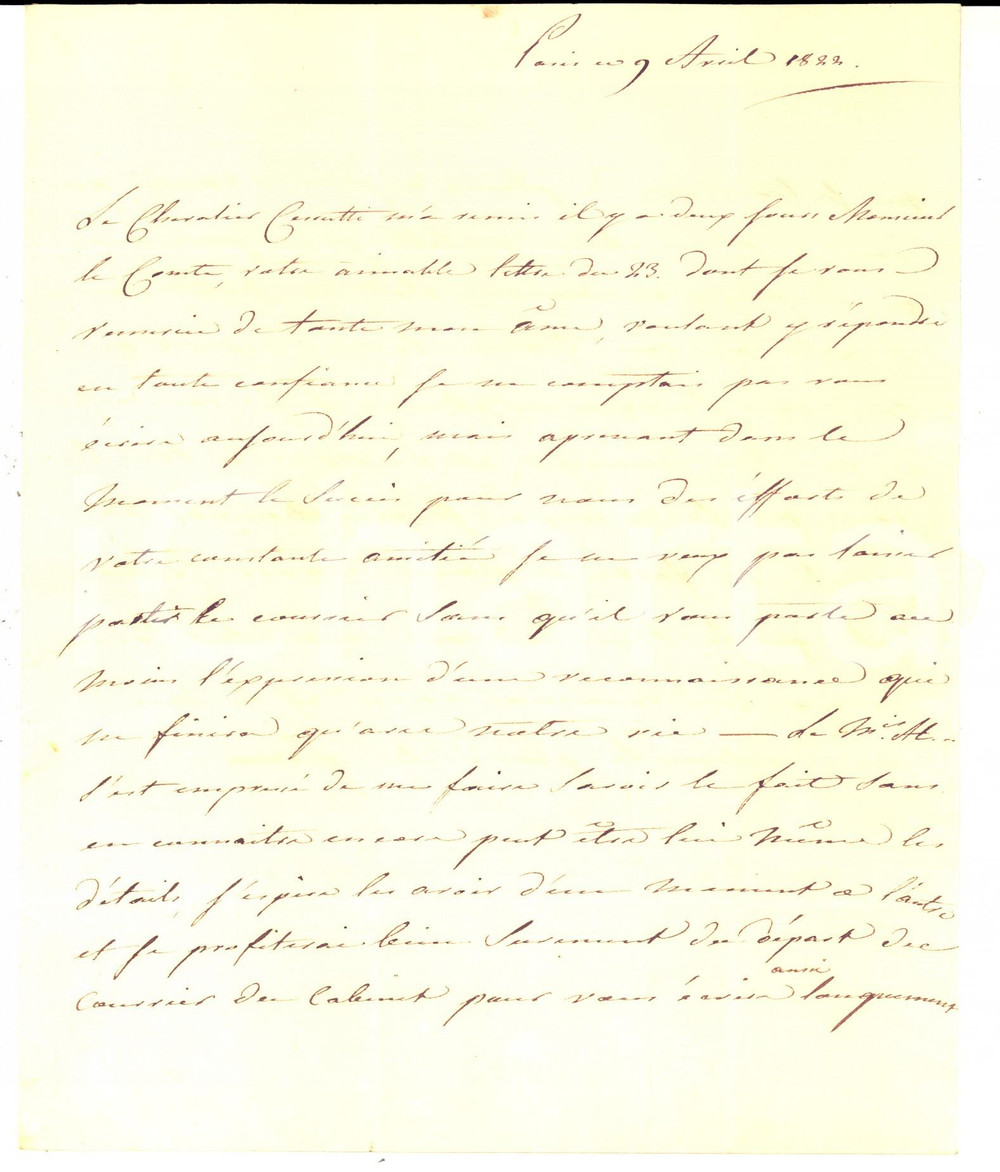 Paris ce 9 Avril 1822.
Le Chevalier Cerrutti m'a remis il y a deux jours Monsieur
le Comte, votre aimable lettre du 23. dont je vous
remercie de toute mon âme, voulant y répondre
en toute confiance je ne comptais pas vous
écrire aujourd'hui, mais aprenant dans le
moment le succès pour nous des éfforts de
votre constante amitié je ne veux pas laisser
partir le courrier sans qu'il vous porte au
moins l'éxpression d'une reconnaissance qui
ne finira qu'avec notre vie — Le Mis. Al..
s'est empressé de me faire savoir le fait sans
en connaitre encore peut être lui même les
détails, j'espère les avoir d'un moment a l'autre
et je profiterai bien surement du départ du
courrier du Cabinet pour vous écrire aussi longuement